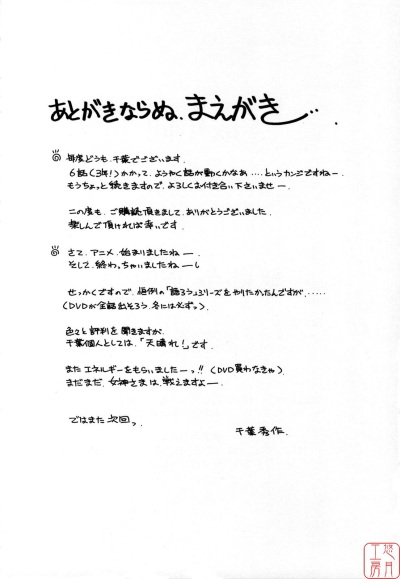 あとがきならぬ、まえがき…。
毎度どうも、千葉でございます。
6話(3年!)かかって、ようやく話が動くかなあ….というカンジですねー。
もうちょっと続きますので、よろしくお付き合い下さいませー.
この度も、ご購読頂きまして、ありがとうございました。
楽しんで頂ければ幸いです。
さて、アニメ、始まりましたねー。
そして、終わっちゃいましたねー。
せっかくですので、恒例の「語ろう」シリーズをやりたかったんですが、……
(DVDが全話出そろう、冬には必ずっ。)
色々と評判を聞きますが、
千葉個人としては、「天晴れ!」です。
またエネルギーをもらいましたーっ!!(DVD買わなきゃ。)
まだまだ、女神さまは、戦えますよー。
ではまた次回っ。
千葉秀作.
悠月工房